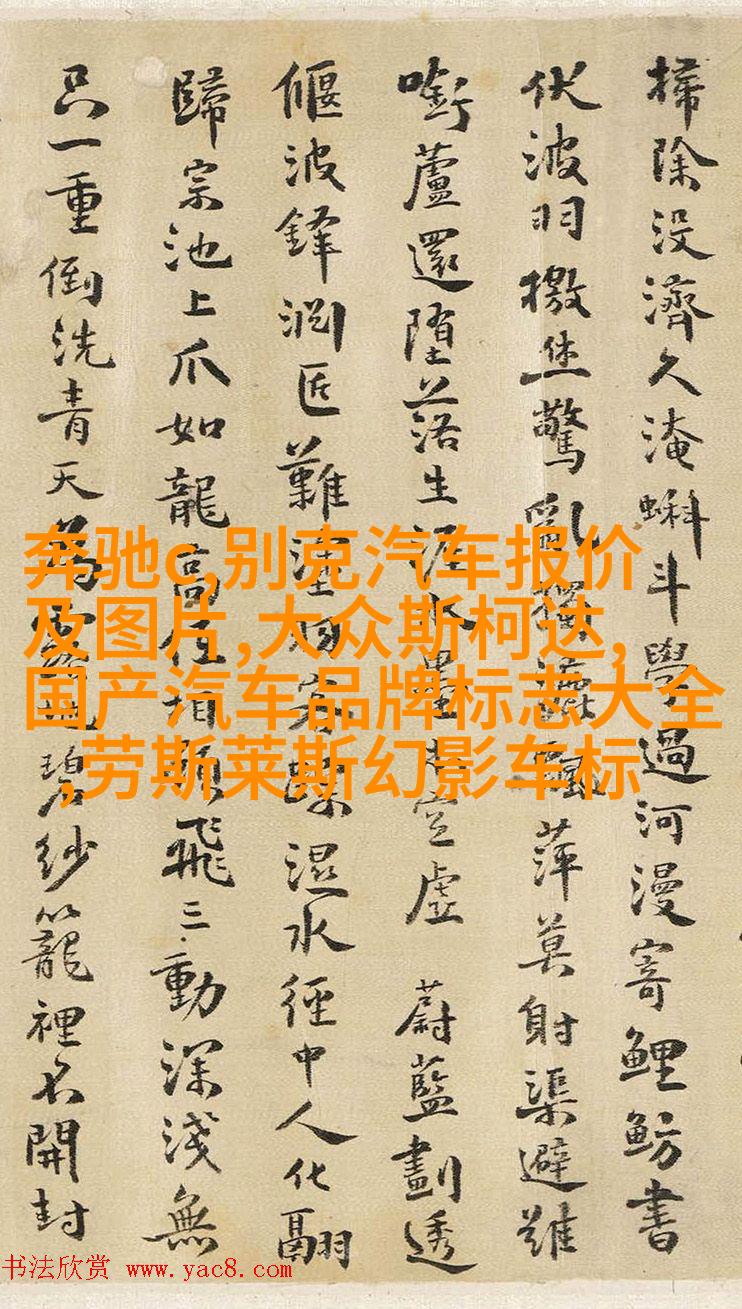 掃除没濟久淹蝌斗學過河漫寄鯉魴書
伏波羽檄焦驚亂獨 萍莫射渠避雖
啣蘆還墮落生泥水墨 空虛 蔚藍劃透
偃波鋒澀匠難 濕水徑中人化翮
歸宗池上爪如龍高低相顧飛三動深淺無
只一重倒洗青天為 碧紗籠裡不開封
奔驰c,别克汽车报价
及图片,大众斯柯达,
国产汽车品牌标志大全
,劳斯莱斯幻影车标
书法欣赏 www.yac8.com